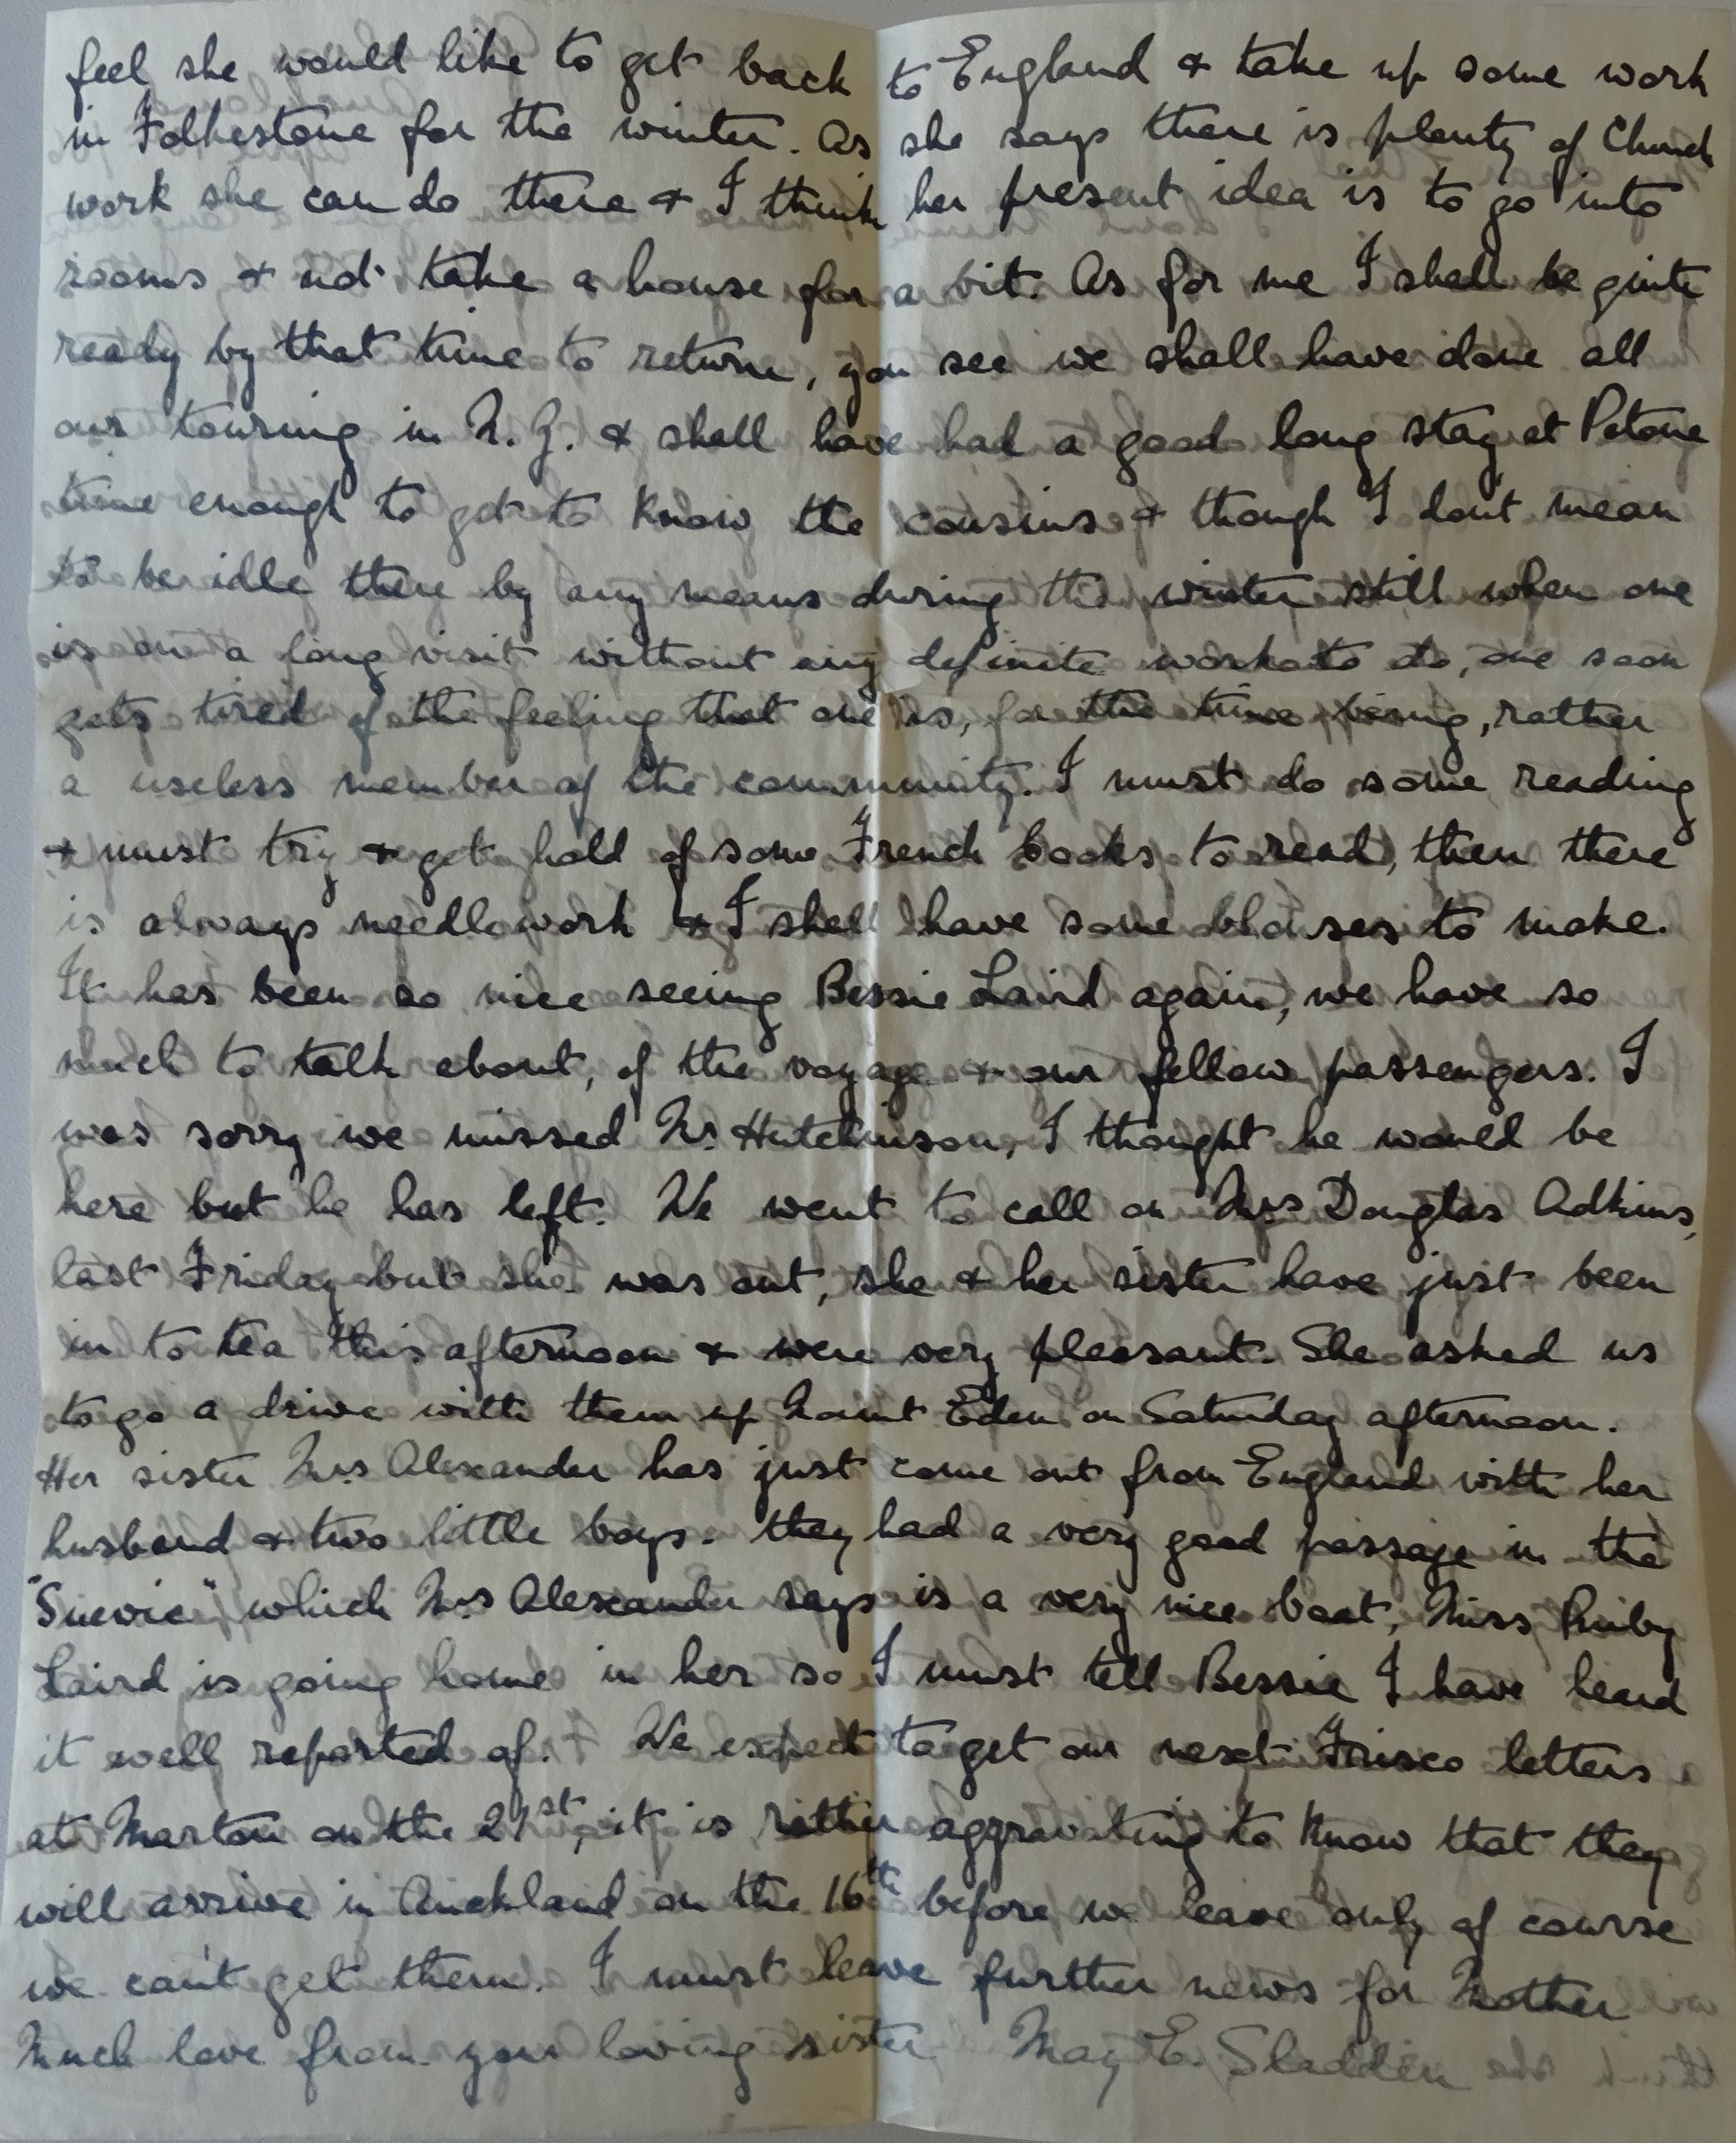 feel she would like to get back to England & take up some work
in Folkestone for the winter. As she says there is plenty of Church
work she can do there & I think her present idea is to go into
rooms & not take a house for a bit. As for me I shall be quite
ready by that time to return, you see we shall have done all
our touring in N. Z. & shall have had a good long stay at Petone
time enough to get to know the cousins & though I don't mean
to be idle there by any means during the winter still when one
is on a long visit without any definite work to do, one soon
gets tired of the feeling that one is, for the time being, rather
a useless member of the community. I must do some reading
& must try & get hold of some French books to read, then there
is always needlework & I shall have some blouses to make.
It has been so nice seeing Bessie Laird again, we have so
much to talk about, of the voyage & our fellow passengers. I
was sorry we missed Mr Hutchinson, I thought he would be
here but he has left. We went to call on Mrs Douglas Adkins,
last Friday but she was out, she & her sister have just been
in to tea this afternoon & were very pleasant. She asked us
to go a drive with them up Mount Eden on Saturday afternoon.
Her sister Mrs Alexander has just come out from England with her
husband & two little boys. they had a very good passage in the
"Suevic" which Mrs Alexander says is a very nice boat, Miss Ruby
Laird is going home in her so I must tell Bessie I have heard
it well reported of. We expect to get our next Frisco letters
at Marton on the 21st, it is rather aggravating to know that they
will arrive in Auckland on the 16th before we leave only of course
we can't get them. I must leave further news for Mother
Much love from your loving sister May E. Sladden